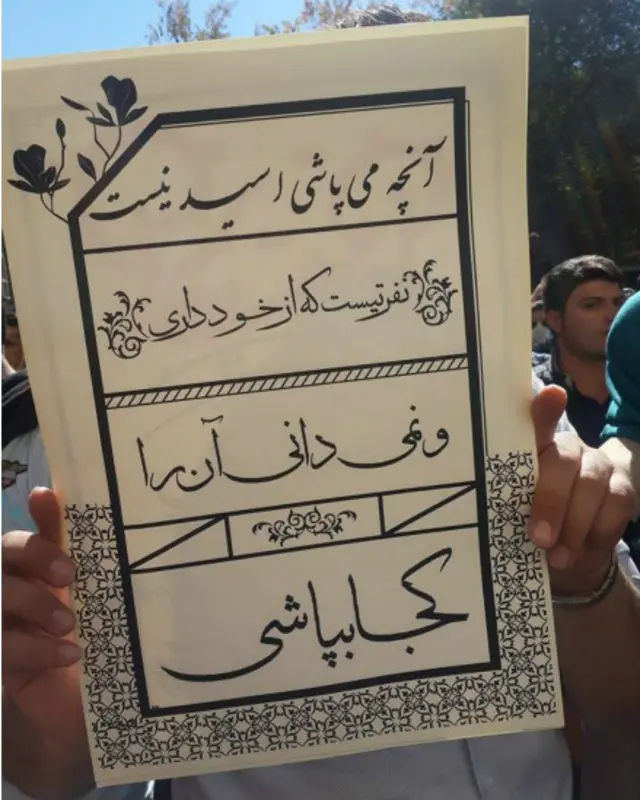 آنچه می پاشی اسید نیست
نفرتیست که از خود داری
و نمی دانی آن را
کجا بپاشی